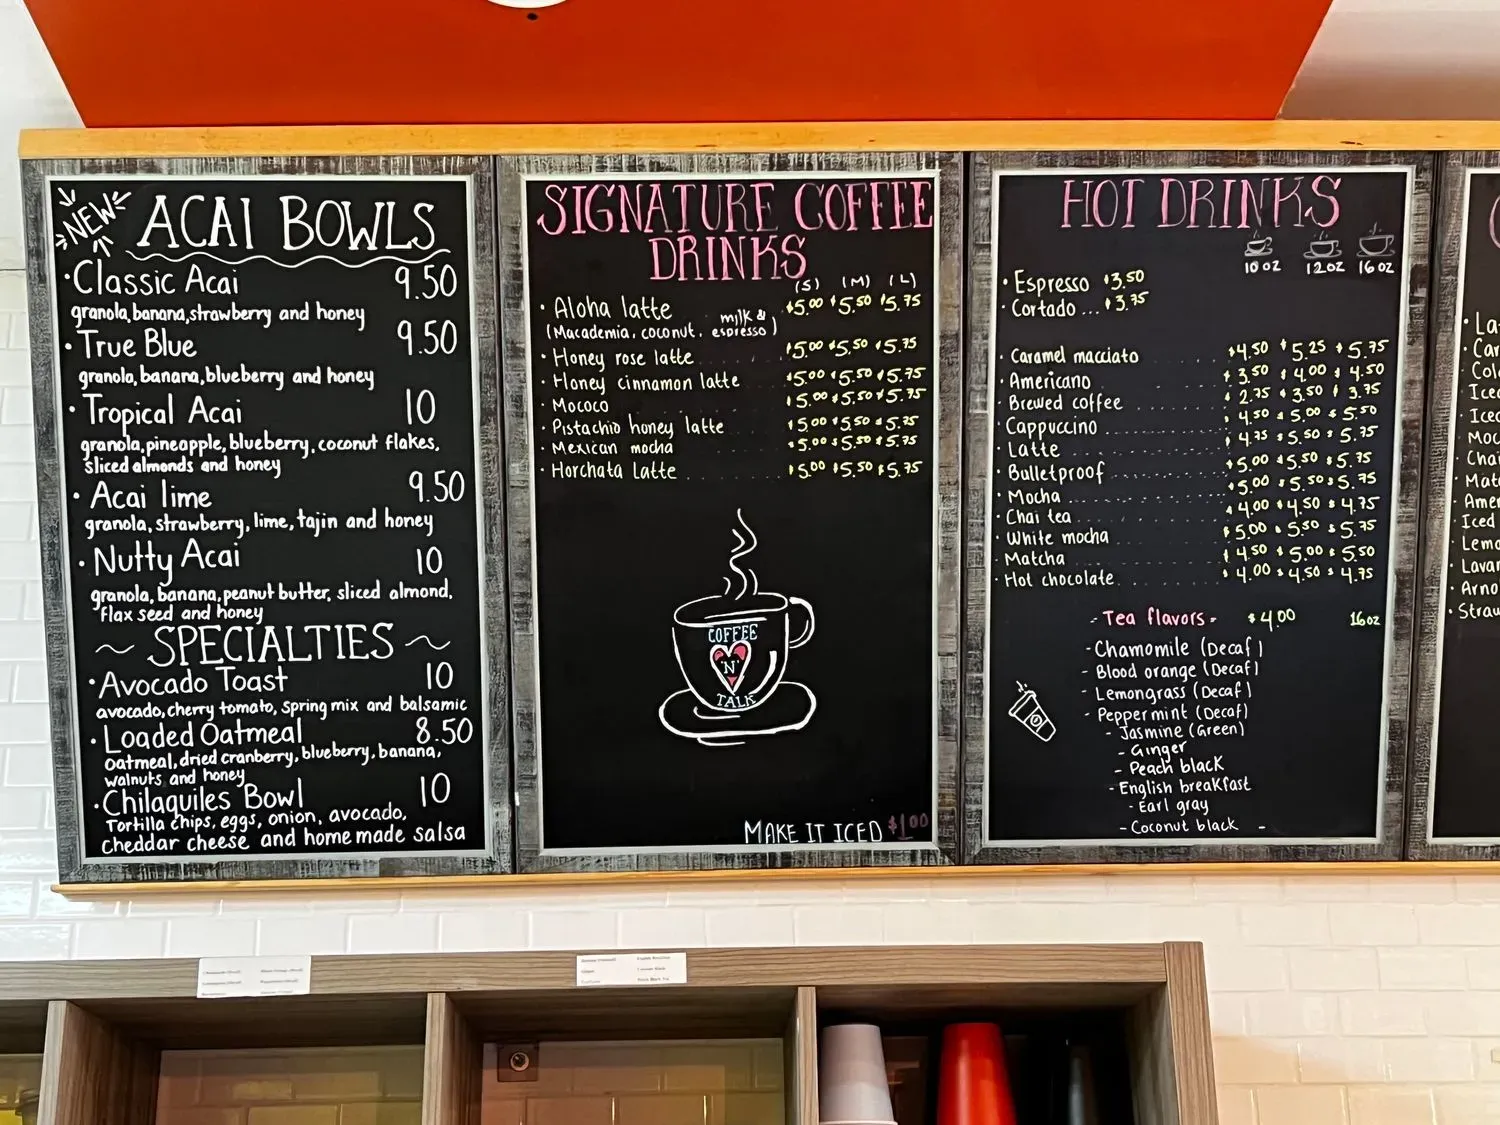 NEW
ACAI BOWLS
• Classic Acai 9.50
granola, banana, strawberry and honey
• True Blue 9.50
granola, banana, blueberry and honey
• Tropical Acai 10
granola, pineapple, blueberry, coconut flakes,
sliced almonds and honey
• Acai lime 9.50
granola, strawberry, lime, tajin and honey
• Nutty Acai 10
granola, banana, peanut butter, sliced almond,
flax seed and honey
~ SPECIALTIES ~
• Avocado Toast 10
avocado, cherry tomato, spring mix and balsamic
• Loaded Oatmeal 8.50
oatmeal, dried cranberry, blueberry, banana,
walnuts and honey
• Chilaquiles Bowl 10
Tortilla chips, eggs, onion, avocado,
cheddar cheese and homemade salsa
SIGNATURE COFFEE
DRINKS
(S) (M) (L)
• Aloha latte $5.00 $5.50 $5.75
(Macademia, coconut, milk & espresso)
• Honey rose latte $5.00 $5.50 $5.75
• Honey cinnamon latte $5.00 $5.50 $5.75
• Mococo $5.00 $5.50 $5.75
• Pistachio honey latte $5.00 $5.50 $5.75
• Mexican mocha $5.00 $5.50 $5.75
• Horchata latte $5.00 $5.50 $5.75
COFFEE
'N'
TALK
MAKE IT ICED $1.00
HOT DRINKS
10 oz 12 oz 16 oz
• Espresso $3.50
• Cortado ... $3.75
• Caramel macciato $4.50 $5.25 $5.75
• Americano $3.50 $4.00 $4.50
• Brewed coffee $2.75 $3.50 $3.75
• Cappuccino $4.50 $5.00 $5.50
• Latte $4.75 $5.50 $5.75
• Bulletproof $5.00 $5.50 $5.75
• Mocha $5.00 $5.50 $5.75
• Chai tea $4.00 $4.50 $4.75
• White mocha $5.00 $5.50 $5.75
• Matcha $4.50 $5.00 $5.50
• Hot chocolate $4.00 $4.50 $4.75
- Tea flavors - $4.00 16oz
- Chamomile (Decaf)
- Blood orange (Decaf)
- Lemongrass (Decaf)
- Peppermint (Decaf)
- Jasmine (Green)
- Ginger
- Peach black
- English breakfast
- Earl gray
- Coconut black -
• La
• Car
• Col
• Iced
• Iced
• Moc
• Chai
• Mat
• Amer
• Iced
• Lemo
• Lavar
• Arno
• Strau